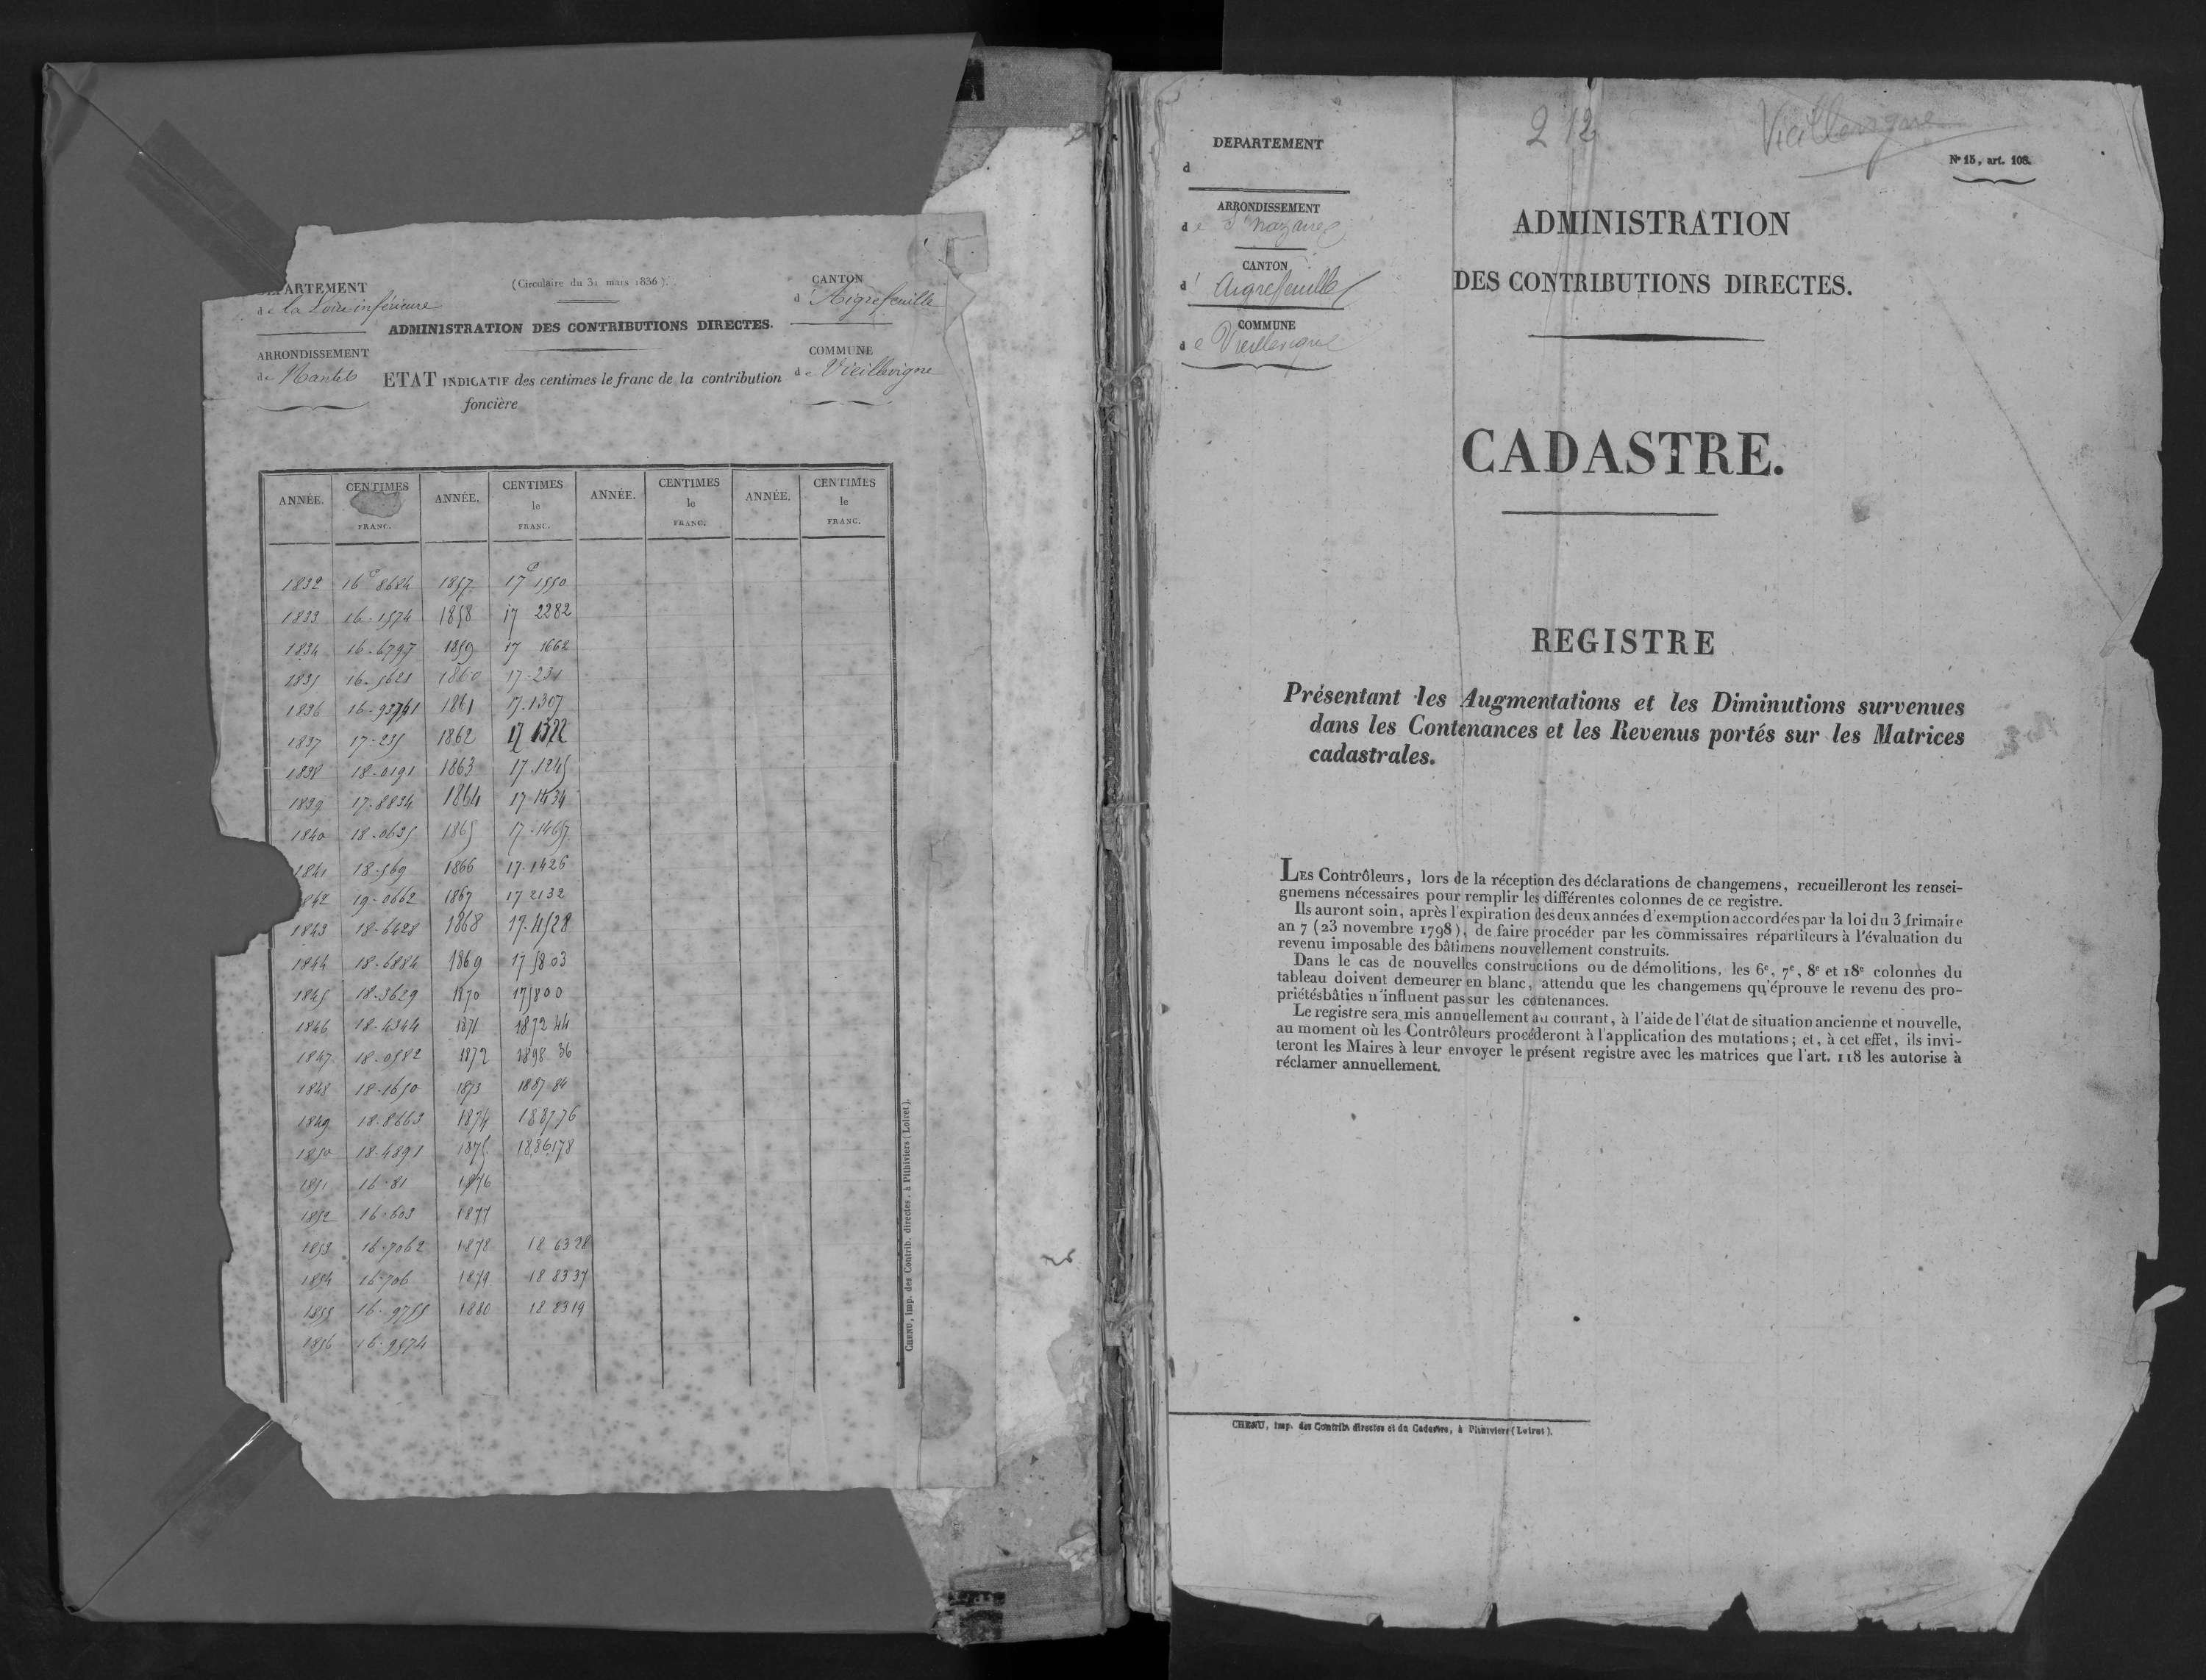 (Circulaire du 31 mars 1836).
ARTEMENT
de la Loire inférieure
CANTON
d'Aigrefeuille
ADMINISTRATION DES CONTRIBUTIONS DIRECTES.
ARRONDISSEMENT
de Nantes
COMMUNE
de Vieillevigne
ETAT INDICATIF des centimes le franc de la contribution
foncière
ANNÉE. CENTIMES FRANC. ANNÉE. CENTIMES le FRANC. ANNÉE. CENTIMES le FRANC. ANNÉE. CENTIMES le FRANC.
1832 16c 8624 1857 17c 1550
1833 16.1574 1858 17 2282
1834 16.6797 1859 17 1662
1835 16.5621 1860 17.231
1836 16. 1861 17.1307
1837 17.235 1862 17
1838 18.0191 1863 17.1245
1839 17.8834 1864 17.1434
1840 18.0635 1865 17.1465
1841 18.569 1866 17.1426
842 19.0662 1867 17 2132
1843 18.6428 1868 17.4528
1844 18.6884 1869 17 5803
1845 18.3629 1870 175800
1846 18.4344 1871 1872 44
1847 18.0582 1872 1898 36
1848 18.1650 1873 1887 84
1849 18.8663 1874 1887 76
1850 18.4891 1875 1886178
1851 16.81 1876
1852 16.603 1877
1853 16.7062 1878 18 6328
1854 16.706 1879 18 8337
1855 16.9755 1880 18 8319
1856 16.9574
CHENU, imp. des Contrib. directes, à Pithiviers (Loiret).
212
Vieillevigne
N° 15, art. 108.
DEPARTEMENT
d
ARRONDISSEMENT
de St nazaire
CANTON
d'Aigrefeuille
COMMUNE
de Vieillevigne
ADMINISTRATION
DES CONTRIBUTIONS DIRECTES.
CADASTRE.
REGISTRE
Présentant les Augmentations et les Diminutions survenues
dans les Contenances et les Revenus portés sur les Matrices
cadastrales.
LES Contrôleurs, lors de la réception des déclarations de changemens, recueilleront les rensei-
gnemens nécessaires pour remplir les différentes colonnes de ce registre.
Ils auront soin, après l'expiration des deux années d'exemption accordées par la loi du 3 frimaire
an 7 (23 novembre 1798), de faire procéder par les commissaires répartiteurs à l'évaluation du
revenu imposable des bâtimens nouvellement construits.
Dans le cas de nouvelles constructions ou de démolitions, les 6e, 7e, 8e et 18e colonnes du
tableau doivent demeurer en blanc, attendu que les changemens qu'éprouve le revenu des pro-
priétés bâties n'influent pas sur les contenances.
Le registre sera mis annuellement au courant, à l'aide de l'état de situation ancienne et nouvelle,
au moment où les Contrôleurs procéderont à l'application des mutations; et, à cet effet, ils invi-
teront les Maires à leur envoyer le présent registre avec les matrices que l'art. 118 les autorise à
réclamer annuellement.
CHENU, imp. des Contrib. directes et du Cadastre, à Pithiviers (Loiret).